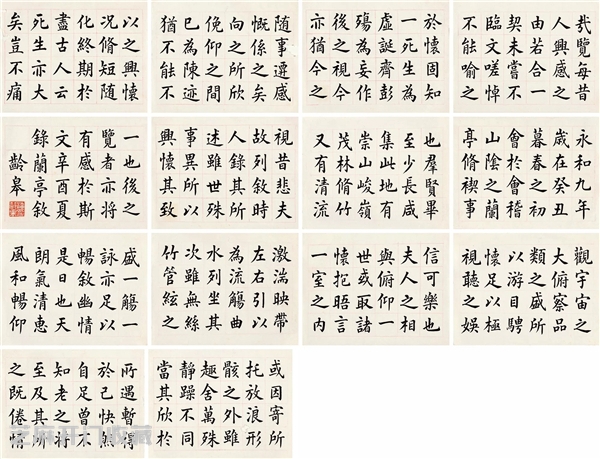 永和九年
歲在癸丑
暮春之初
會於會稽
山陰之蘭
亭脩禊事
也羣賢畢
至少長咸
集此地有
崇山峻嶺
茂林脩竹
又有清流
激湍映帶
左右引以
為流觴曲
水列坐其
次雖無絲
竹管絃之
盛一觴一
詠亦足以
暢敘幽情
是日也天
朗氣清惠
風和暢仰
觀宇宙之
大俯察品
類之盛所
以游目騁
懷足以極
視聽之娛
信可樂也
夫人之相
與俯仰一
世或取諸
懷抱晤言
一室之內
或因寄所
托放浪形
骸之外雖
趣舍萬殊
靜躁不同
當其欣於
所遇暫得
於己快然
自足曾不
知老之將
至及其所
之既倦情
隨事遷感
慨係之矣
向之所欣
俛仰之間
已為陳迹
猶不能不
以之興懷
況脩短隨
化終期於
盡古人云
死生亦大
矣豈不痛
哉覽每昔
人興感之
由若合一
契未嘗不
臨文嗟悼
不能喻之
於懷固知
一死生為
虛誕齊彭
殤為妄作
後之視今
亦猶今之
視昔悲夫
故列敘時
人錄其所
述雖世殊
事異所以
興懷其致
一也後之
覽者亦將
有感於斯
文辛酉夏
錄蘭亭敘
齡皋
芝麻开门收藏